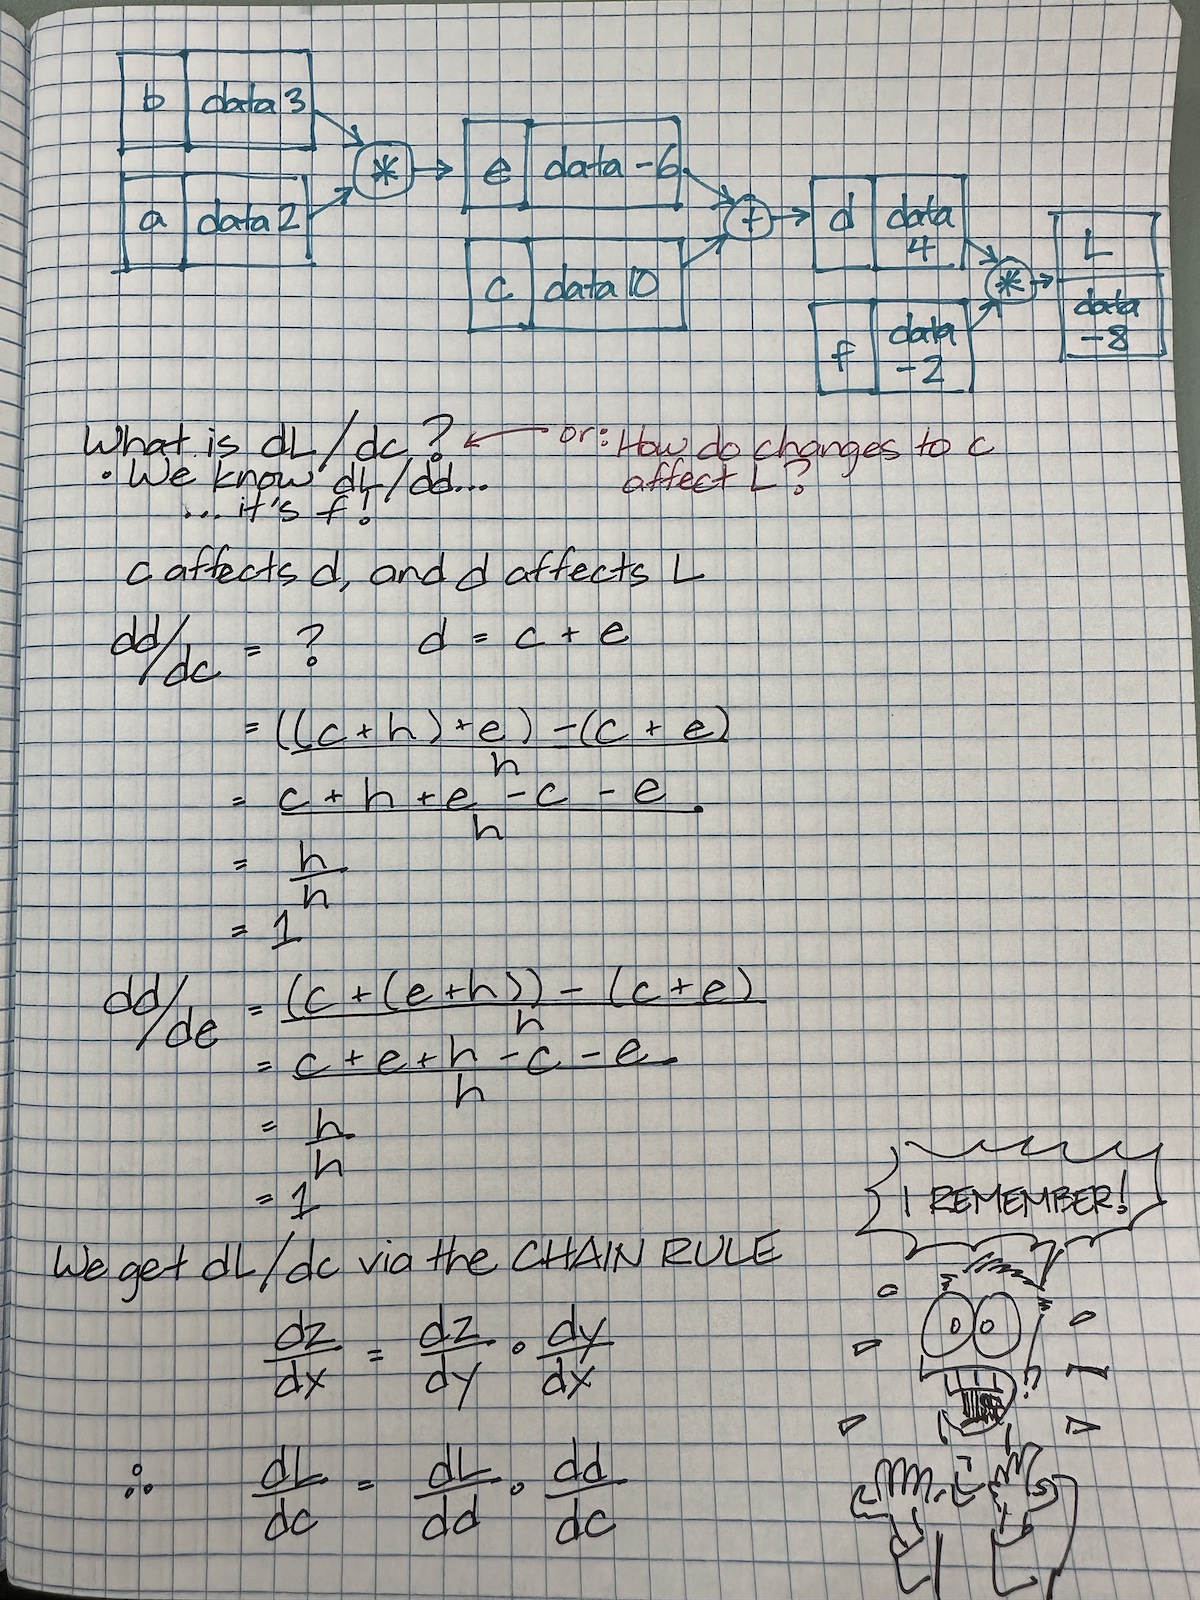 b data 3
a data 2
*
e data -6
c data 10
+
d data
4
f data
-2
*
L
data
-8
What is dL/dc? ← or: How do changes to c
affect L?
• We know dL/dd...
... it's f!
c affects d, and d affects L
dd/dc = ? d = c + e
= ((c + h) + e) - (c + e)
h
= c + h + e - c - e
h
= h
h
= 1
dd/de = (c + (e + h)) - (c + e)
h
= c + e + h - c - e
h
= h
h
= 1
We get dL/dc via the CHAIN RULE
dz/dx = dz/dy • dy/dx
∴ dL/dc = dL/dd • dd/dc
I REMEMBER!